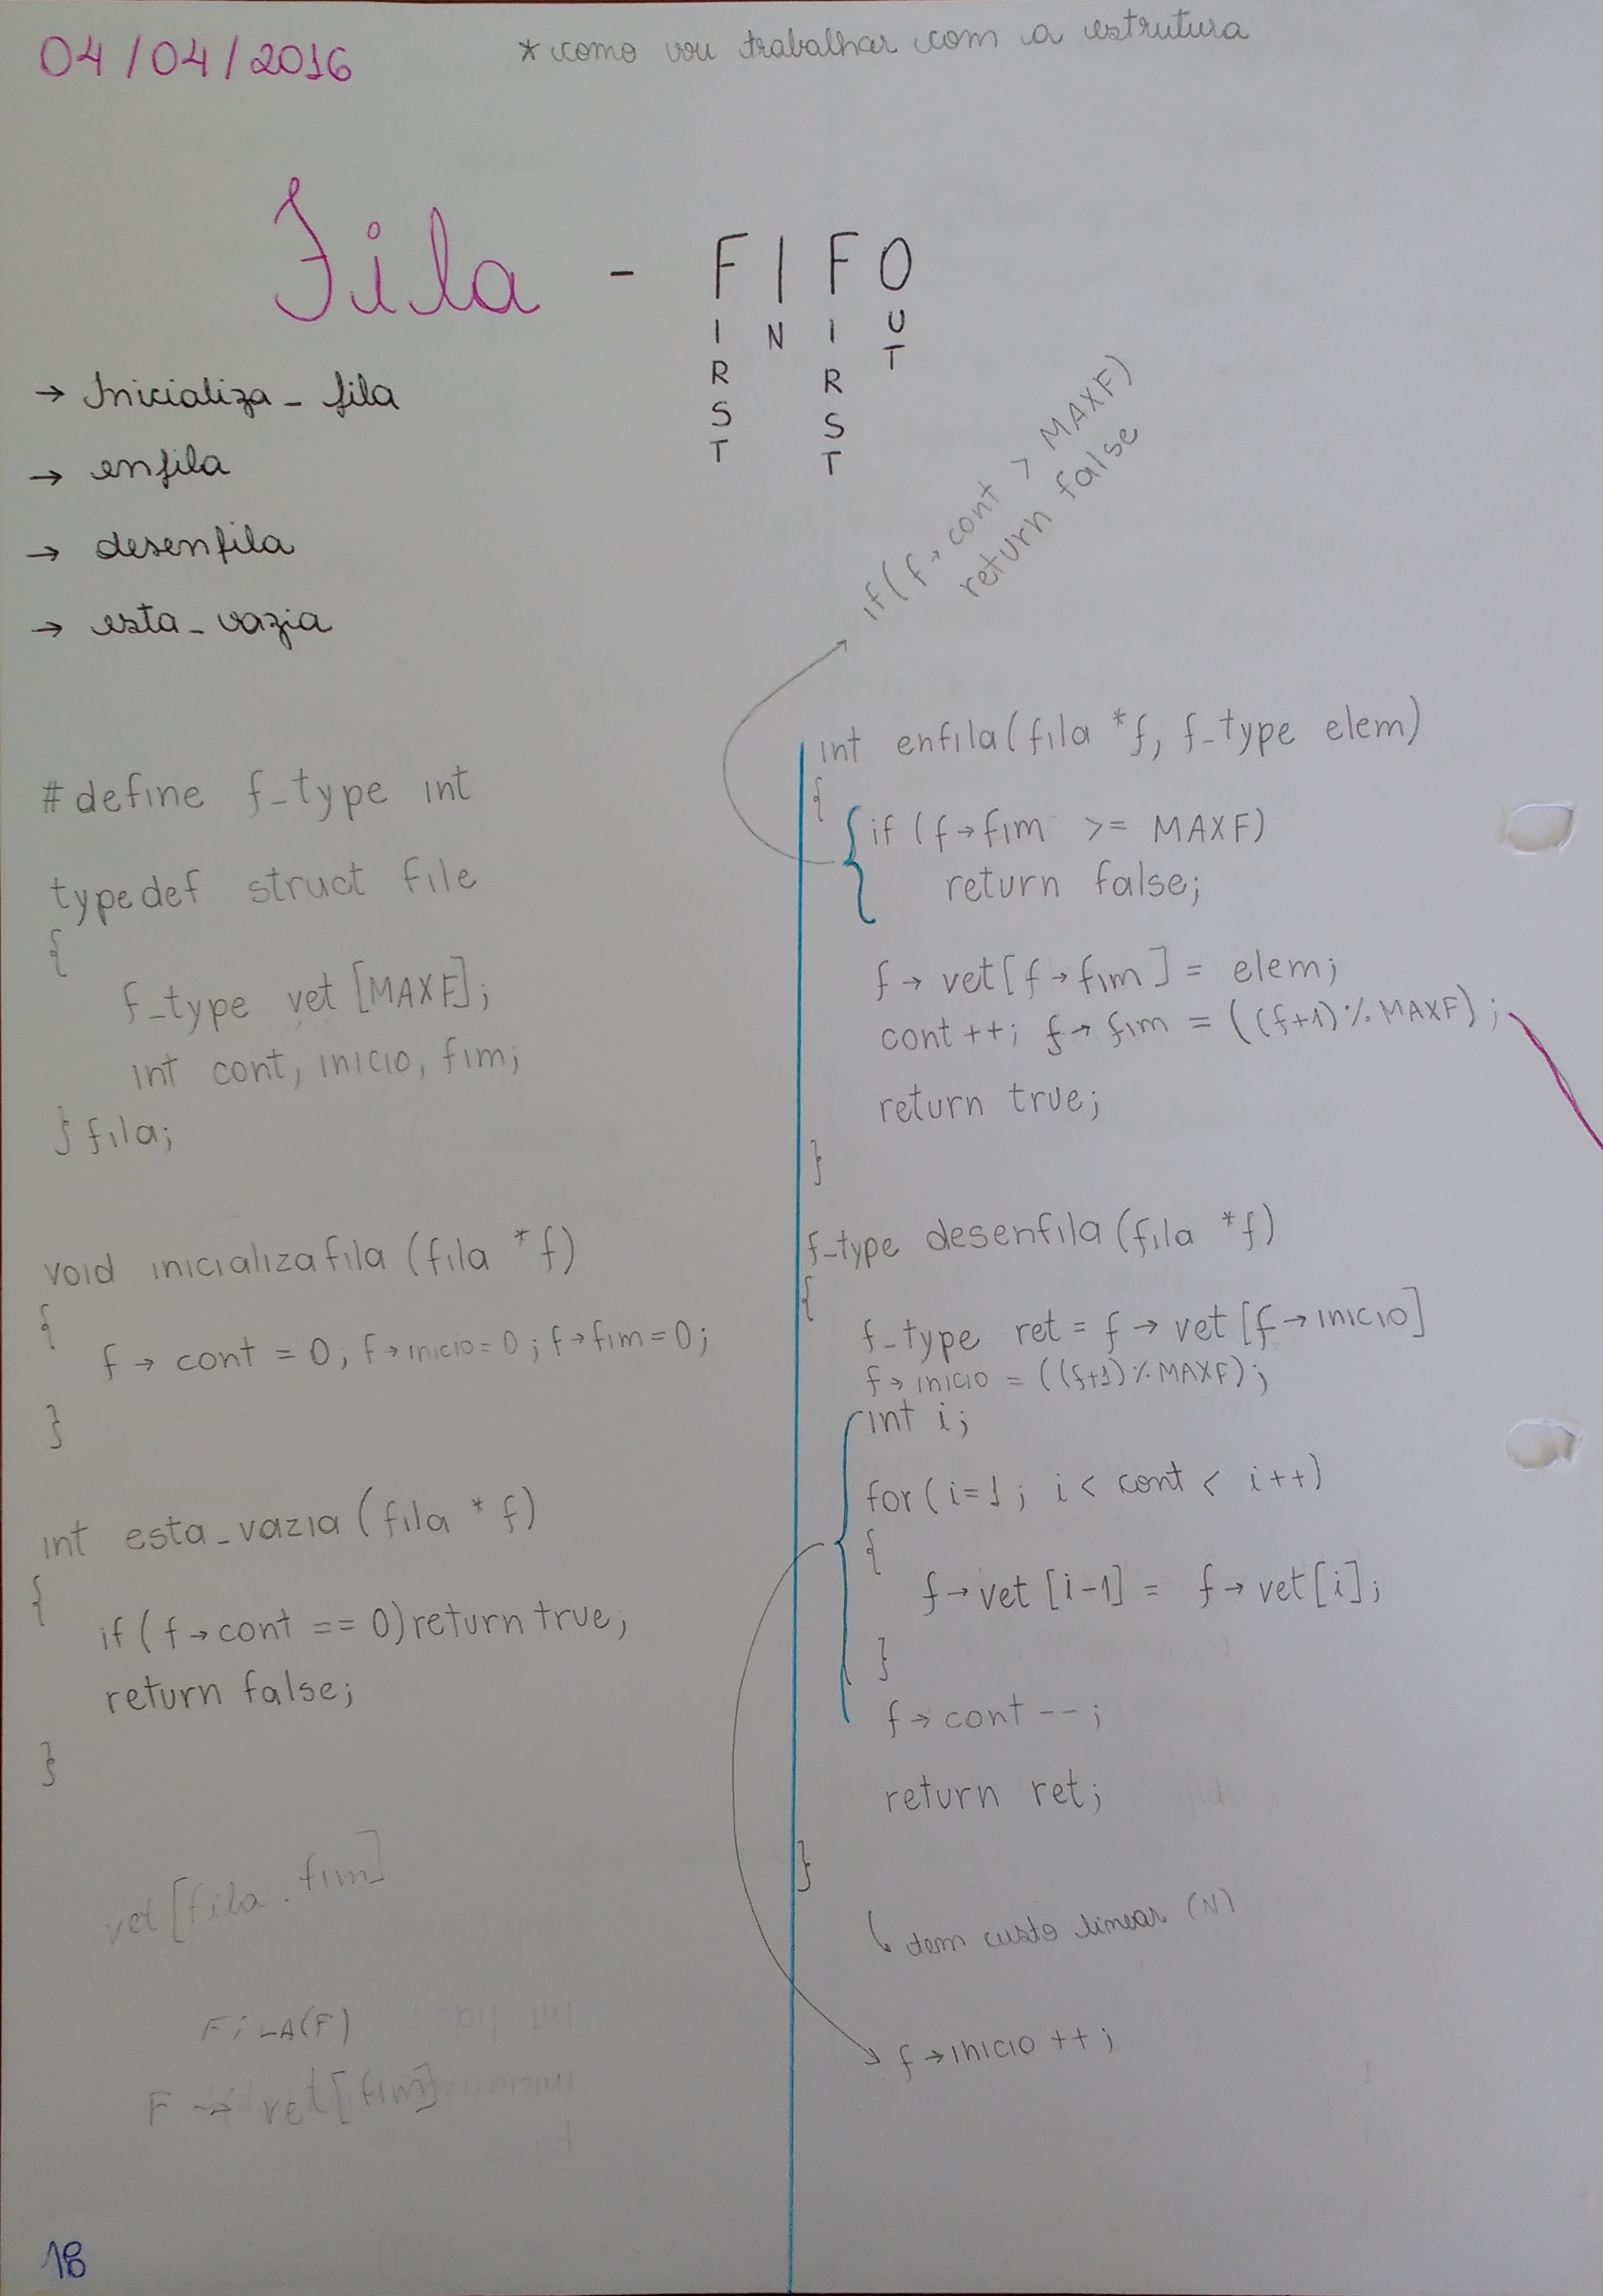 04/04/2016
* como vou trabalhar com a estrutura
Fila - FIFO
FIRST
IN
FIRST
OUT
→ Inicializa_fila
→ enfila
→ desenfila
→ esta_vazia
#define f_type int
typedef struct file
{
f_type vet [MAXF];
int cont, inicio, fim;
} fila;
void inicializafila (fila *f)
{
f → cont = 0; f→inicio=0; f→fim=0;
}
int esta_vazia (fila * f)
{
if (f→cont == 0) return true;
return false;
}
vet [fila.fim]
FiLA(F)
F → vet[fim]
18
if (f→cont > MAXF)
return false
int enfila (fila *f, f_type elem)
{
if (f→fim >= MAXF)
return false;
f → vet[f→fim] = elem;
cont++; f→fim = ((f+1)%MAXF);
return true;
}
f_type desenfila (fila *f)
{
f_type ret = f → vet [f→inicio]
f→inicio = ((f+1)%MAXF);
int i;
for (i=1; i < cont < i++)
{
f→vet [i-1] = f→vet[i];
}
f→cont--;
return ret;
}
tem custo linear (N)
f→inicio++;